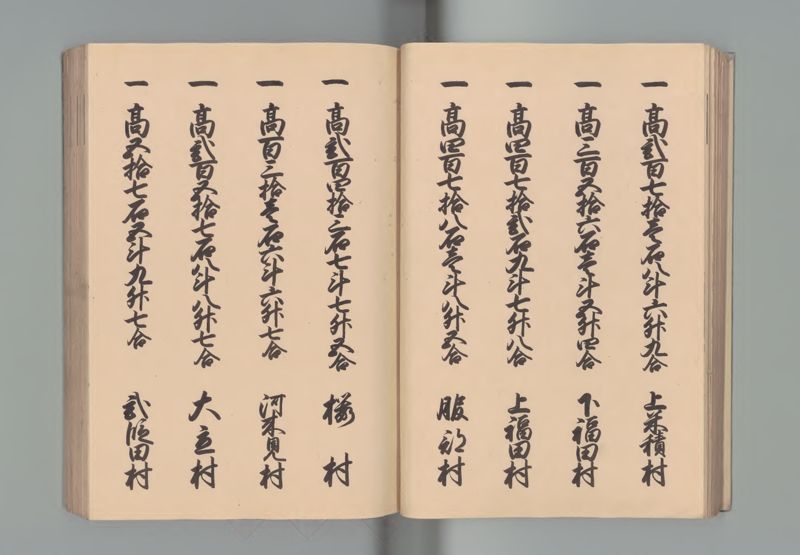 一 高弐百七拾壱石八斗六升九合 上米積村
一 高三百五拾六石壱斗五升四合 下福田村
一 高四百七拾弐石九斗七升八合 上福田村
一 高四百七拾八石壱斗八升五合 服部村
一 高弐百四拾三石七斗七升五合 桜村
一 高百三拾壱石六斗六升七合 河来見村
一 高弐百五拾七石八斗八升七合 大立村
一 高五拾七石五斗九升七合 弐 田村